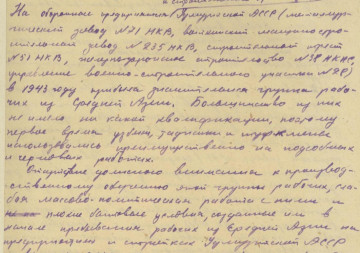 На оборонные предприятия Удмуртской АССР (металлурги-
ческий завод №71 НКВ, воткинский машиностро-
ительный завод №235 НКВ, строительный трест
№51 НКВ, железнодорожное строительство №38 НКПС,
управление военно-строительного участка №98)
в 1943 году прибыла значительная группа рабо-
чих из Средней Азии. Большинство из них
не имело ни какой квалификации, поэтому
первое время узбеки, таджики и туркмены
использовались преимущественно на подсобных
и черновых работах.
Отсутствие должного внимания к производ-
ственному обучению этой группы рабочих, сла-
бая массово-политическая работа с ними и
плохие бытовые условия, созданные им в
начале пребывания, рабочих из Средней Азии на
предприятиях и стройках Удмуртской АССР